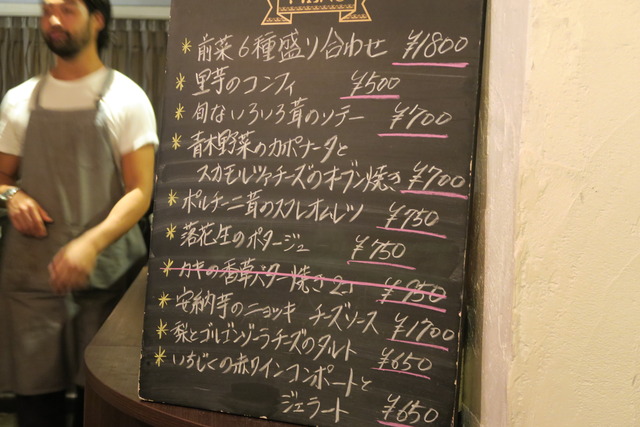 *前菜6種盛り合わせ ¥1800
*里芋のコンフィ ¥500
*旬ないろいろ茸のソテー ¥700
*青木野菜のカポナータと
スカモルツァチーズのオーブン焼き ¥700
*ポルチーニ茸のスフレオムレツ ¥750
*落花生のポタージュ ¥750
*カキの香草バター焼き 2コ ¥950
*安納芋のニョッキ チーズソース ¥1700
*梨とゴルゴンゾーラチーズのタルト ¥650
*いちじくの赤ワインコンポートと
ジェラート ¥650